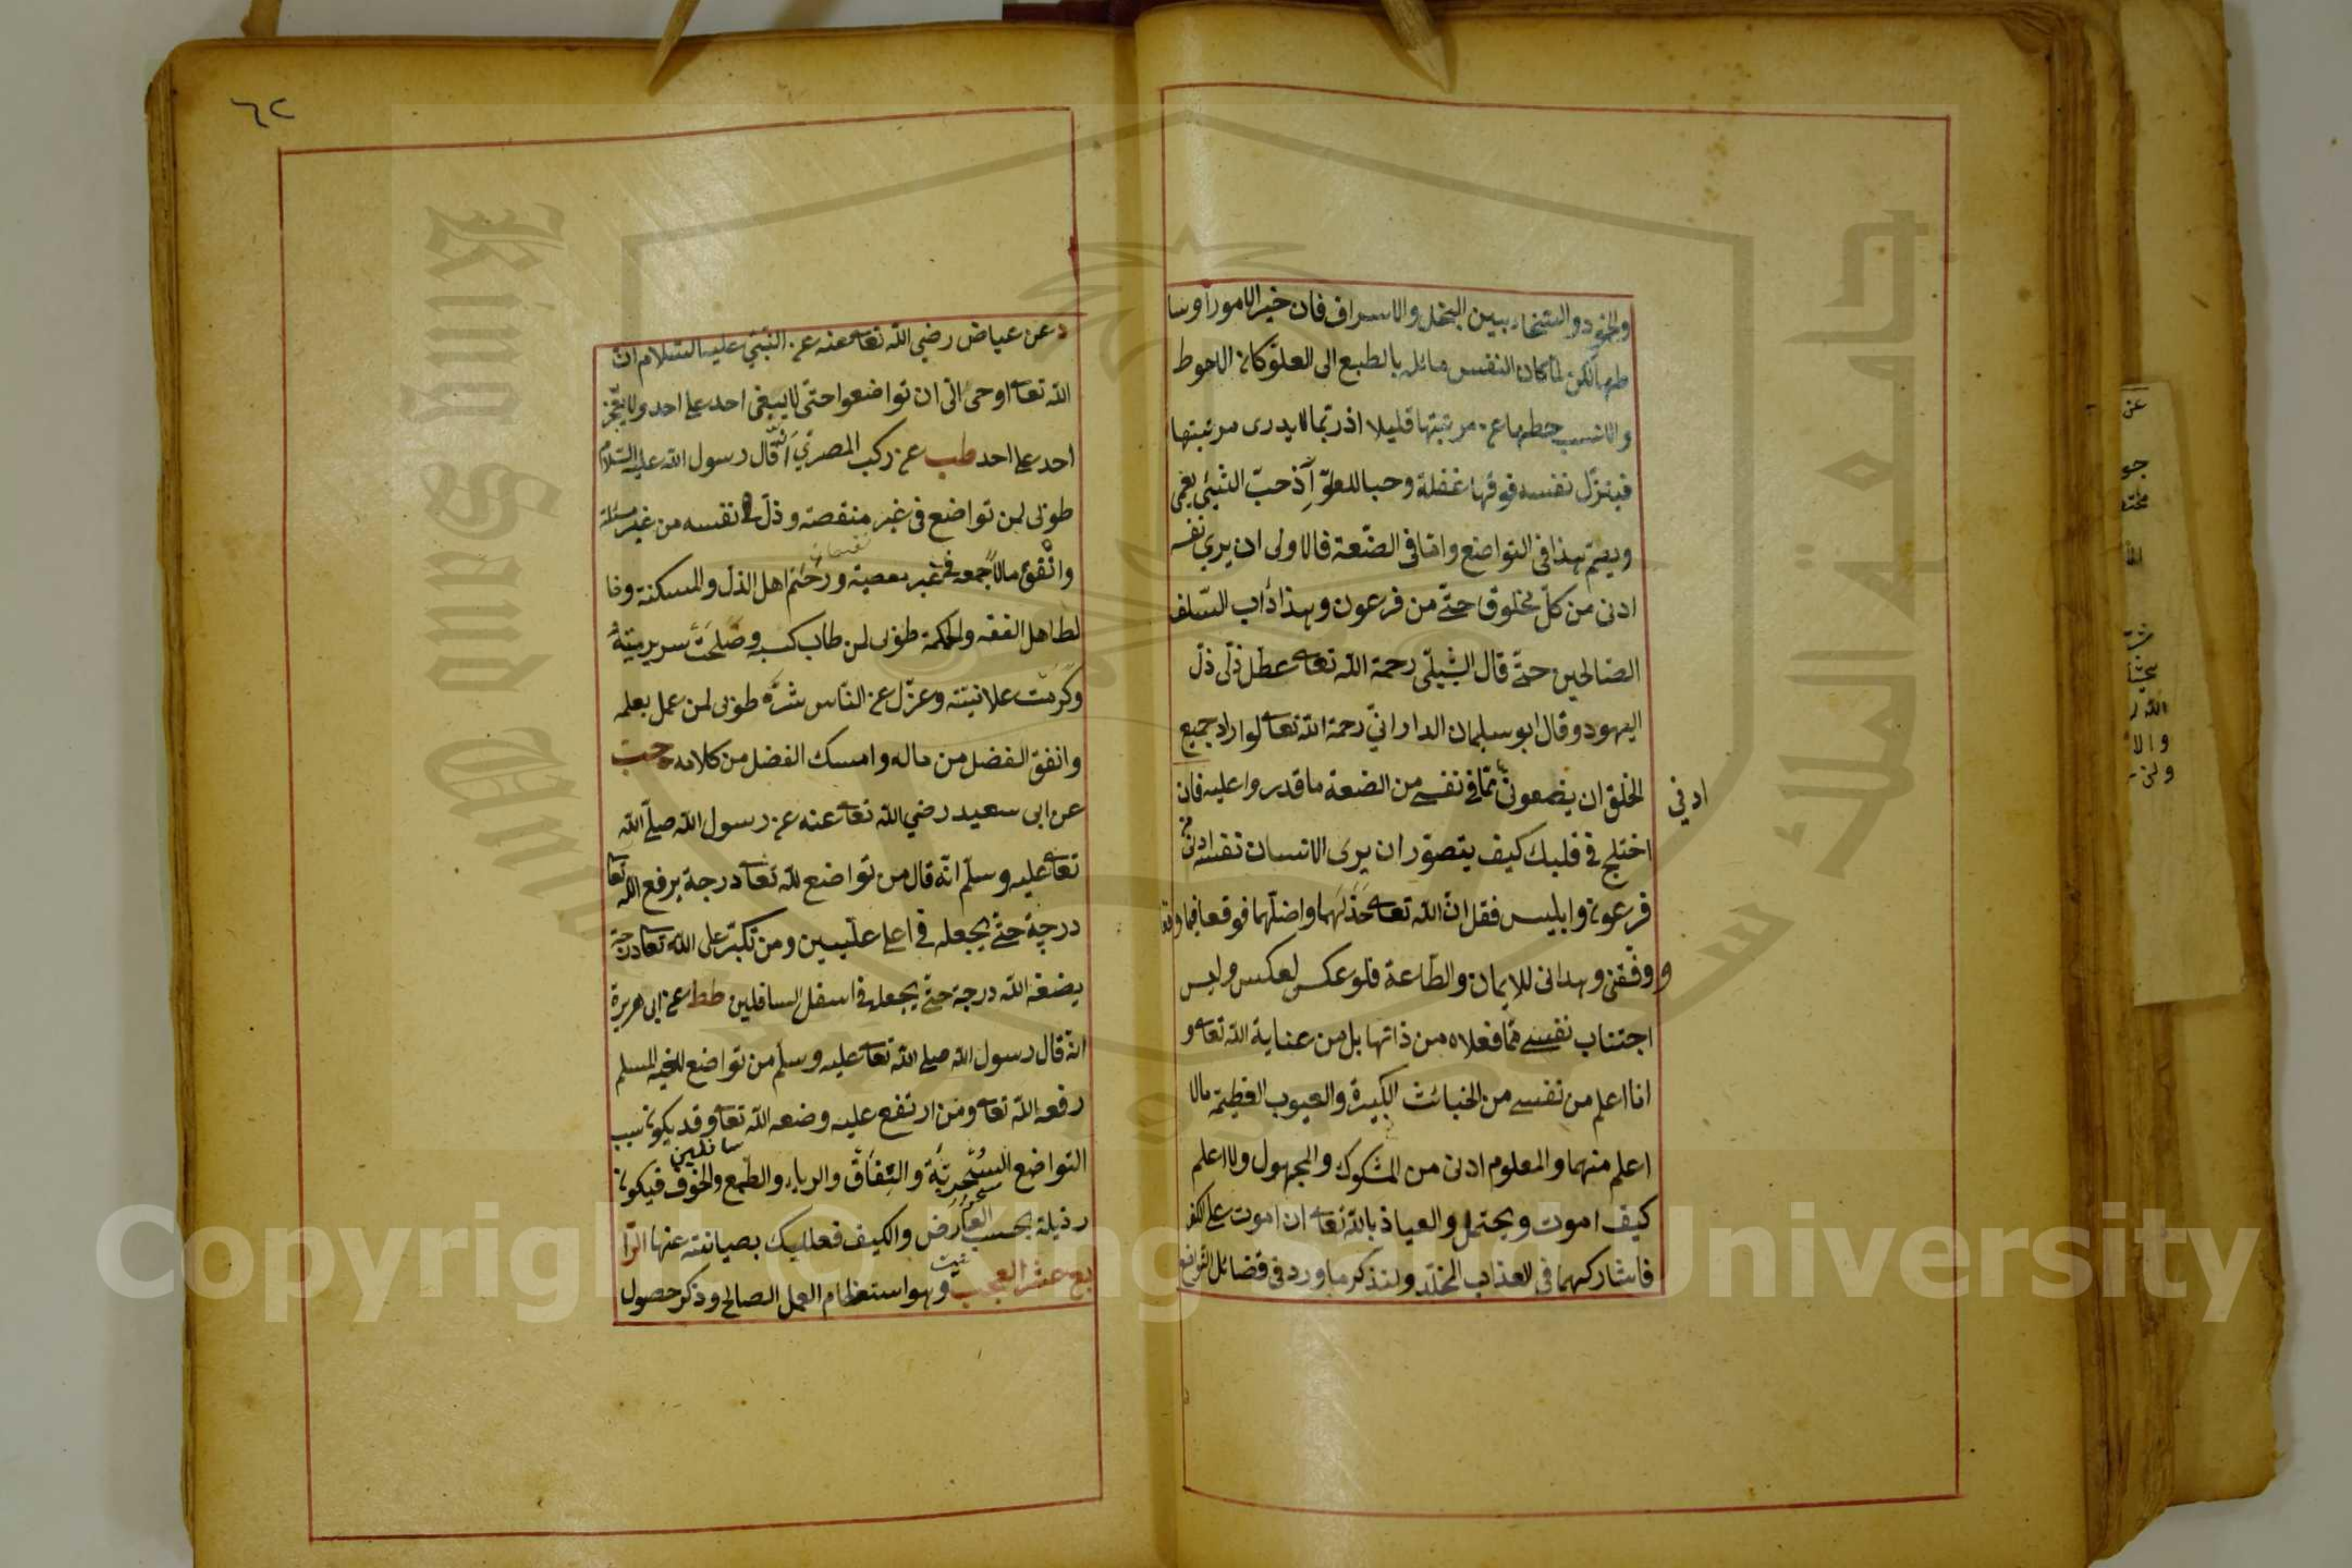 والجود والسخاء بين البخل والاسراف فان خير الامور اوسا
طها لكن لما كان النفس مائلة بالطبع الى العلو كان الاحوط
والانسب حطها عن مرتبتها قليلا اذ ربما لا يدرى مرتبتها
فينزل نفسه فوقها غفلة وحبا للعلو اذ حب الشيء يعمى
ويصم هذا في التواضع واما في الضعة فالاولى ان يرى نفسه
ادنى من كل مخلوق حتى من فرعون وهذا دأب السلف
الصالحين حتى قال الشبلي رحمة الله تعا عطل ذلى ذل
اليهود وقال ابو سليمان الداراني رحمة الله تعا لو اراد جميع
الخلق ان يضعونى مما في نفسى من الضعة ما قدروا عليه فان
ادني
اختلج في قلبك كيف يتصور ان يرى الانسان نفسه ادنى من
فرعون وابليس فقل ان الله تعا خذلهما واضلهما فوقعا فيما وقعا
و وفقنى وهدانى للايمان والطاعة فلو عكس لعكس وليس
اجتناب نفسى مما فعلاه من ذاتها بل من عناية الله تعا و
انا اعلم من نفسى من الخبائث الكبيرة والعيوب العظيمة مالا
اعلم منهما والمعلوم ادنى من المشكوك والمجهول ولا اعلم
كيف اموت ويحتمل والعياذ بالله تعا ان اموت على الكفر
فاشاركهما في العذاب المخلد ولنذكر ما ورد في فضائل التواضع
٦٢
د عن عياض رضي الله تعا عنه عن النبي عليه السلام ان
الله تعا اوحى الى ان تواضعوا حتى لا يبغى احد على احد ولا يفخر
احد على احد طب عن ركب المصري انه قال رسول الله عليه السلام
طوبى لمن تواضع في غير منقصة وذل في نفسه من غير مسئلة
وانفق مالا جمعه في غير معصية ورحم اهل الذل والمسكنة وخا
لط اهل الفقه والحكمة طوبى لمن طاب كسبه وصلحت سريرته
وكرمت علانيته وعزل عن الناس شره طوبى لمن عمل بعلمه
وانفق الفضل من ماله وامسك الفضل من كلامه حب
عن ابى سعيد رضي الله تعا عنه عن رسول الله صلى الله
تعا عليه وسلم انه قال من تواضع لله تعا درجة يرفع الله تعا
درجة حتى يجعله في اعلى عليين ومن تكبر على الله تعا درجة
يضعه الله درجة حتى يجعله في اسفل السافلين طط عن ابى هريرة
انه قال رسول الله صلى الله تعا عليه وسلم من تواضع لاخيه المسلم
رفعه الله تعا ومن ارتفع عليه وضعه الله تعا وقد يكون سبب
التواضع السخرية والنفاق والرياء والطمع والخوف فيكون
رذيلة بحسب العارض والكيف فعليك بصيانته عنها الرا
بع عشر العجب وهو استعظام العمل الصالح وذكر حصول